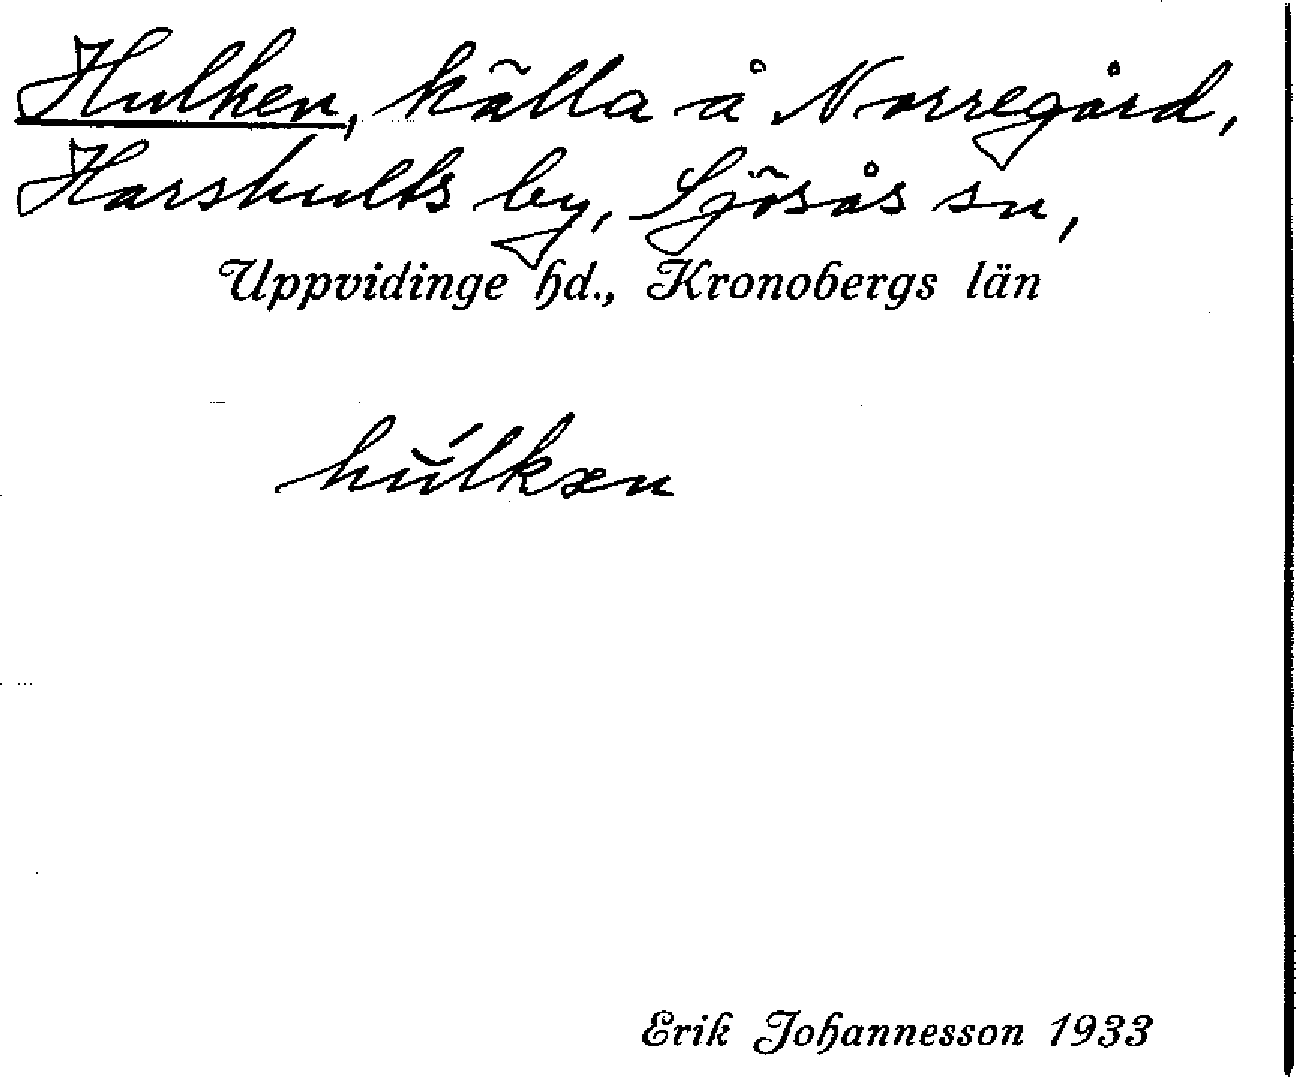 Hulken, källa å Norregård,
Harshults by, Sjösås sn,
Uppvidinge hd., Kronobergs län
hŭ́lkxn
Erik Johannesson 1933